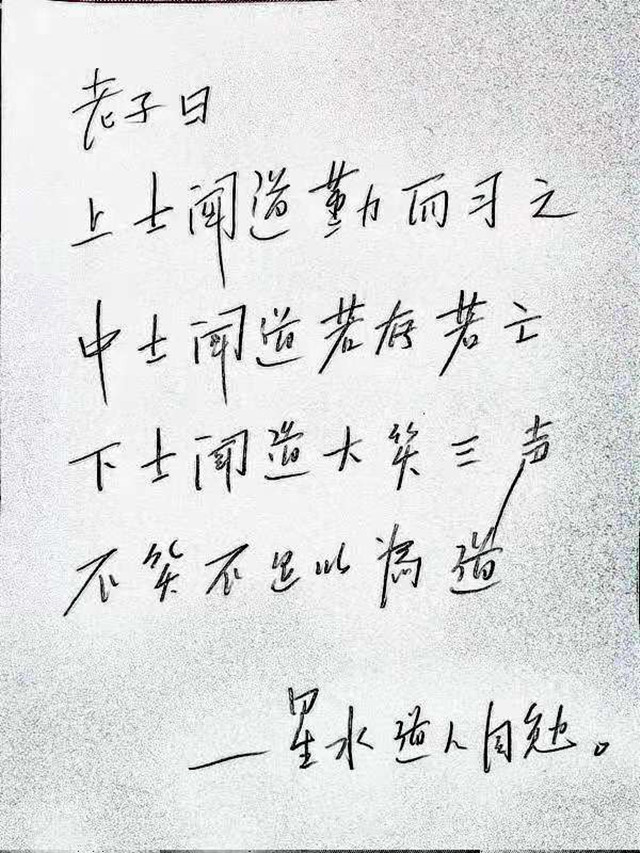 老子曰
上士闻道勤而习之
中士闻道若存若亡
下士闻道大笑三声
不笑不足以为道
——星水道人自勉。